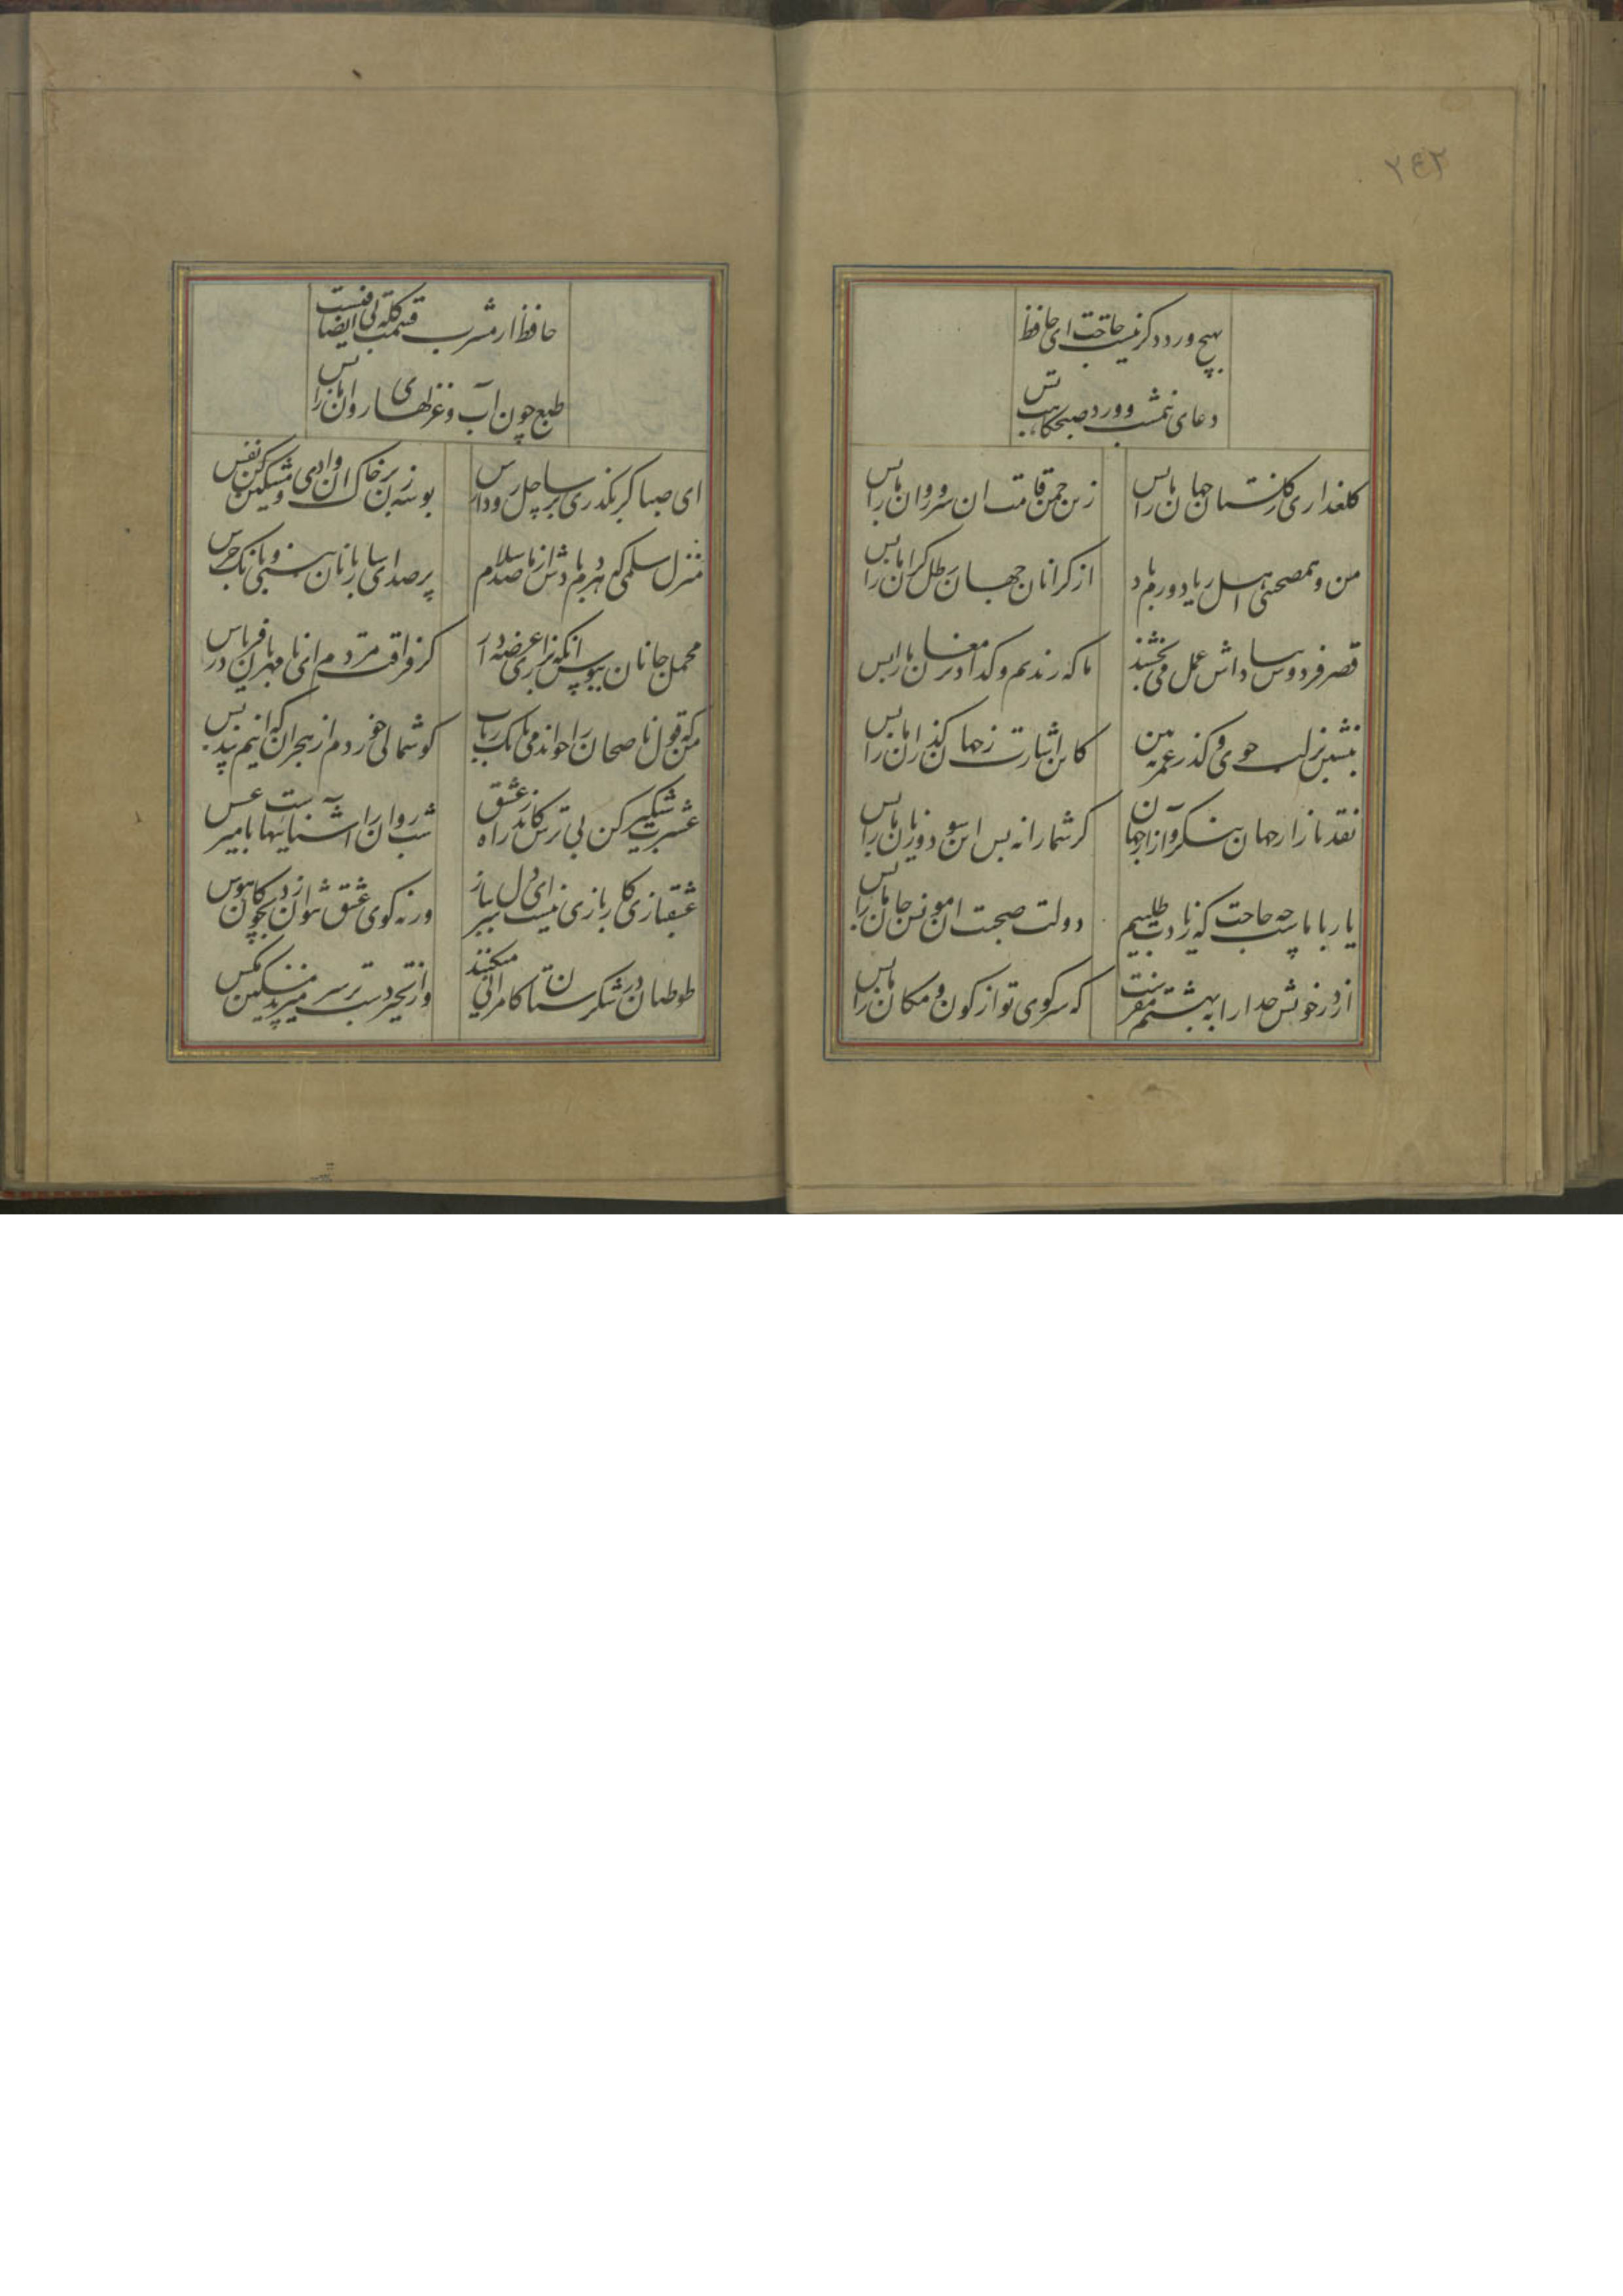 ۲۴۲
بهیچ ورد دکر نیست حاجت ای حافظ
دعای نیمشب و ورد صبحکاهت بس
کلعذاری ز کلستان جهان ما را بس
زین چمن قامت ان سرو روان ما را بس
من و همصحبتی اهل ریا دورم باد
از کرانان جهان رطل کران ما را بس
قصر فردوس بپاداش عمل می بخشند
ما که رندیم و کدا دیر مغان ما را بس
بنشین بر لب جوی و کذر عمر ببین
کاین اشارت ز جهان کذران ما را بس
نقد بازار جهان بنکر و ازار جهان
کر شما را نه بس این سود و زیان ما را بس
یار با ماست چه حاجت که زیادت طلبیم
دولت صحبت ان مونس جان ما را بس
از در خویش خدا را به بهشتم مفرست
که سر کوی تو از کون و مکان ما را بس
حافظ از مشرب قسمت کله بی انصافیست
طبع چون آب و غزلهای روان ما را بس
ای صبا کر بکذری بر ساحل رود ارس
بوسه زن بر خاک ان وادی و مشکین کن نفس
منزل سلمی که بادش هر دم از ما صد سلام
پر صدای ساربانان بینی و بانک جرس
محمل جانان ببوس انکه بزاری عرضه دار
کز فراقت مردم ای نامهربان فریاد رس
من که قول ناصحان را خواندمی بانک رباب
کوشمالی خوردم از هجران که اینم پند بس
عشرت شبکیر کن بی ترس کاندر راه عشق
شب روان را آشناییهاست با میر عسس
عشقبازی کار بازی نیست ای دل سر بباز
ورنه کوی عشق نتوان زد بچوکان هوس
طوطیان در شکرستان کامرانی میکنند
وز تحیر دست بر سر میزند مسکین مکس